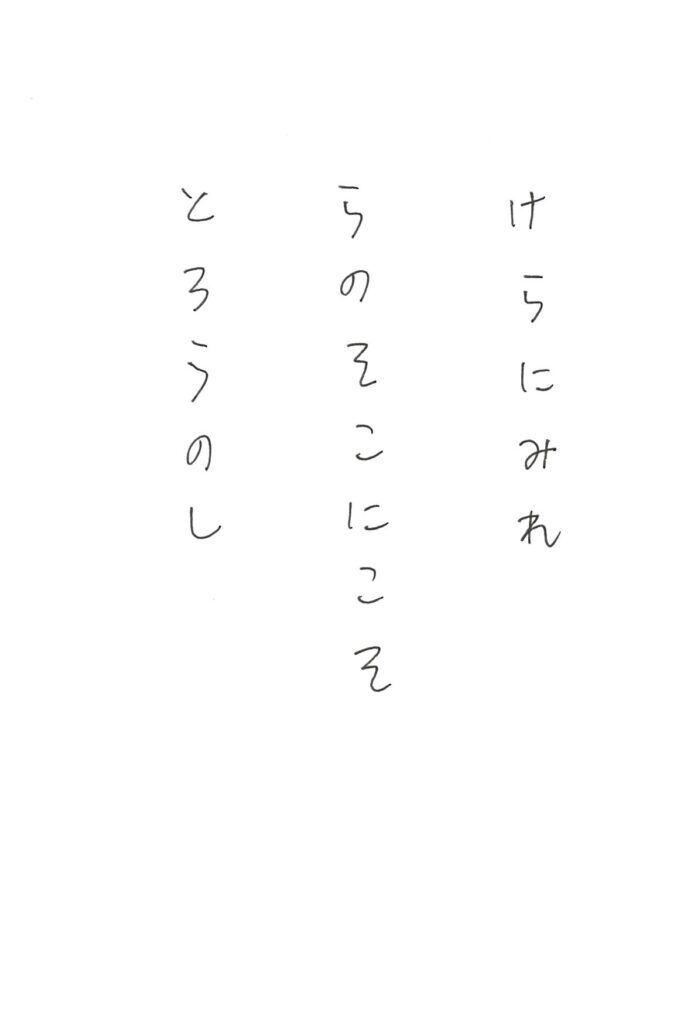 けらにみれ
らのそこにこそ
とろうのし